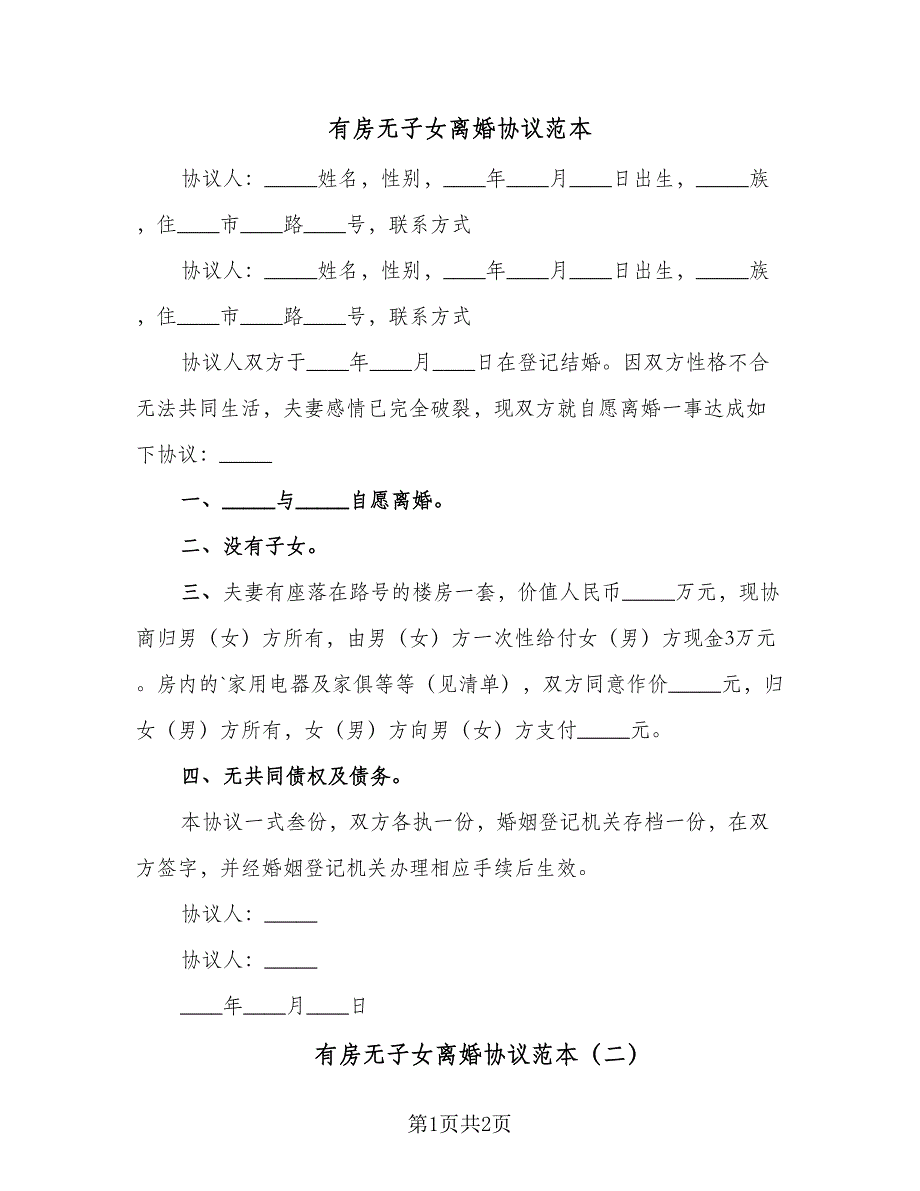 有房无子女离婚协议范本
协议人：_____姓名，性别，____年____月____日出生，_____族
，住____市____路____号，联系方式
协议人：_____姓名，性别，____年____月____日出生，_____族
，住____市____路____号，联系方式
协议人双方于____年____月____日在登记结婚。因双方性格不合
无法共同生活，夫妻感情已完全破裂，现双方就自愿离婚一事达成如
下协议：_____
一、_____与_____自愿离婚。
二、没有子女。
三、夫妻有座落在路号的楼房一套，价值人民币_____万元，现协
商归男（女）方所有，由男（女）方一次性给付女（男）方现金3万元
。房内的`家用电器及家俱等等（见清单），双方同意作价_____元，归
女（男）方所有，女（男）方向男（女）方支付_____元。
四、无共同债权及债务。
本协议一式叁份，双方各执一份，婚姻登记机关存档一份，在双
方签字，并经婚姻登记机关办理相应手续后生效。
协议人：_____
协议人：_____
____年____月____日
有房无子女离婚协议范本（二）
第1页共2页